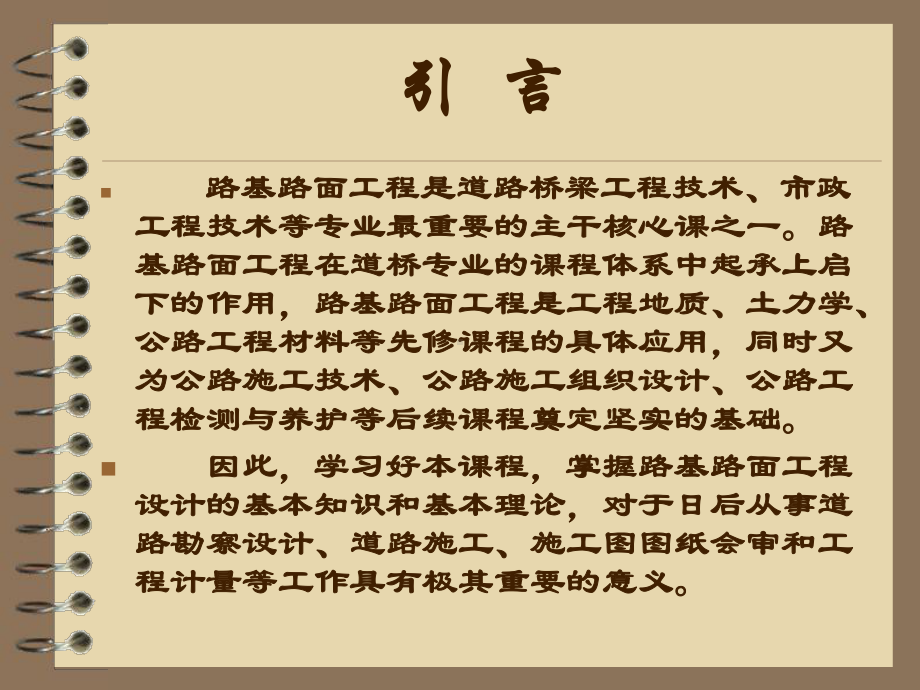 引 言
路基路面工程是道路桥梁工程技术、市政
工程技术等专业最重要的主干核心课之一。路
基路面工程在道桥专业的课程体系中起承上启
下的作用，路基路面工程是工程地质、土力学、
公路工程材料等先修课程的具体应用，同时又
为公路施工技术、公路施工组织设计、公路工
程检测与养护等后续课程奠定坚实的基础。
因此，学习好本课程，掌握路基路面工程
设计的基本知识和基本理论，对于日后从事道
路勘察设计、道路施工、施工图图纸会审和工
程计量等工作具有极其重要的意义。